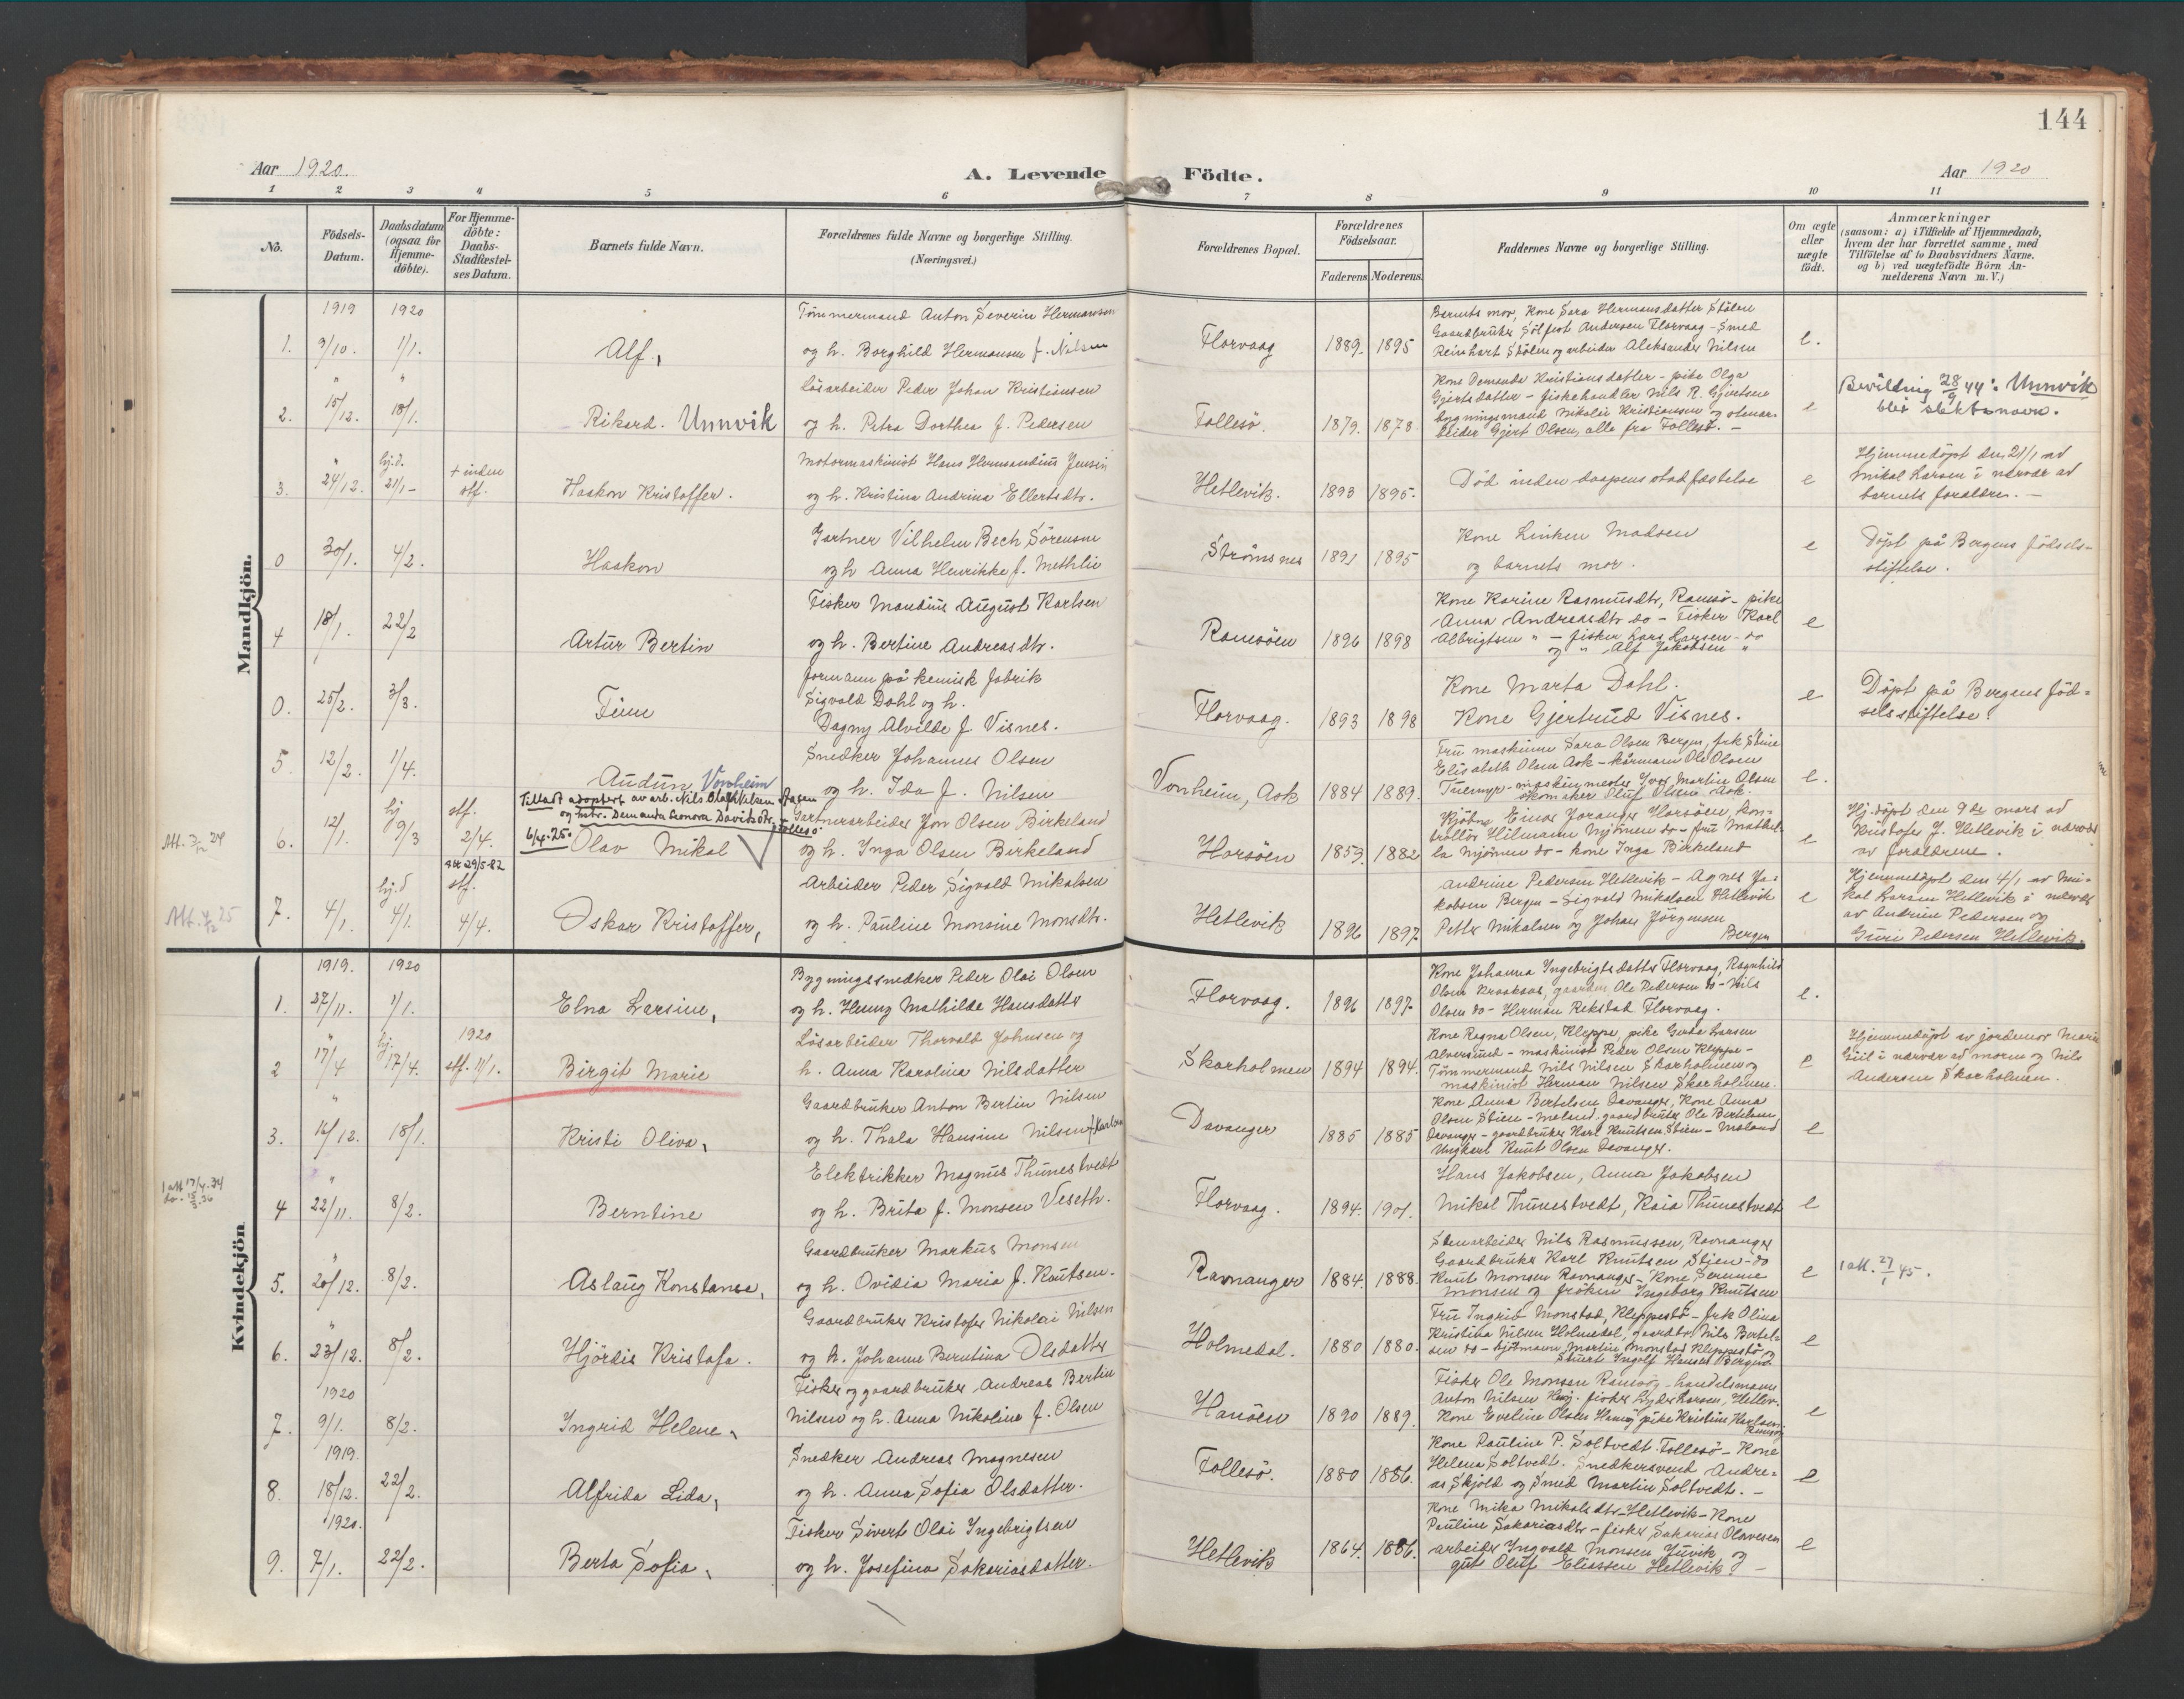 144
Aar 1920.
A. Levende Födte.
Aar 1920
1 2 3 4 5 6 7 8 9 10 11
No.
Födsels-
Datum.
Daabsdatum
(ogsaa for
Hjemme-
döbte).
For Hjemme-
döbte:
Daabs-
Stadfæstel-
ses Datum.
Barnets fulde Navn.
Forældrenes fulde Navne og borgerlige Stilling.
(Næringsvei.)
Forældrenes Bopæl.
Forældrenes
Födselsaar.
Faderens Moderens.
Faddernes Navne og borgerlige Stilling.
Om ægte
eller
uægte
födt.
Anmærkninger
(saasom: a) i Tilfælde af Hjemmedaab,
hvem der har forrettet samme, med
Tilföielse af to Daabsvidners Navne.
og b) ved uægtefödte Börn An-
melderens Navn m. V.)
Mandkjön.
1919 1920
1. 3/10. 1/1.
Alf,
Tömmermand Anton Severin Hermansen
og h. Borghild Hermansen f. Nilsen
Florvaag
1889. 1895
Barnets mor, Kone Sara Hermansdatter Stölen
Gaardbruker Sölfest Andersen Florvaag - Smed
Reinhart Stölen og arbeider Aleksander Nilsen
e.
2. 15/12. 18/1.
Rikard. Unnvik
Lösarbeider Peder Johan Kristiansen
og h. Petra Dorthea f. Pedersen
Follesö.
1879. 1878
Kone Demanda Kristiansdatter - pike Olga
Gjertsdatter - fiskehandler Nils R. Gjertsen
bygningsmand Nikolai Kristiansen og stenar-
beider Gjert Olsen, alle fra Follesö. -
e
Bevilling 28/9 44: Unnvik
blir slektsnavn.
3. 24/12. hj.d. 21/1 - + inden stf.
Haakon Kristoffer.
Motormaskinist Hans Hermandius Jensen
og h. Kristina Andrina Ellertsdtr.
Hetlevik.
1893 1895.
Död inden daapens stadfæstelse
e
Hjemmedöpt den 21/1 av
Mikal Larsen i nærvær av
barnets forældre. -
0 30/1. 4/2.
Haakon
Gartner Vilhelm Bech Sörensen
og h Anna Henrikke f. Methlie
Strömsnes
1891 1895
Kone Linken Madsen
og barnets mor.
e
Döpt på Bergens födsels-
stiftelse.
4 18/1. 22/2
Artur Bertin
Fisker Mandius August Karlsen
og h. Bertine Andreasdtr.
Ramsöen
1896 1898
Kone Karine Rasmusdtr, Ramsö - pike
Anna Andreasdtr do - Fisker Karl
Albrigtsen " - fisker Lars Larsen - do
og " Alf Jakobsen "
e
0. 25/2. 3/3.
Finn
formann på kemisk fabrik
Sigvald Dahl og h.
Dagny Alvilde f. Visnes.
Florvaag.
1893 1898
Kone Marta Dahl.
Kone Gjertrud Visnes.
e
Döpt på Bergens föd-
selsstiftelse.
5. 12/2. 1/4.
Audun Vonheim
Snedker Johannes Olsen
og h. Ida f. Nilsen
Vonheim, Ask
1884 1889.
Fru maskinm Sara Olsen Bergen, frk Stine
Elisabeth Olsen Ask - Ole Olsen
maskinmester Iver Martin Olsen
skomaker Oluf Olsen Ask.
e.
Att. 3/12 24
6. 12/1. hj 9/3 stf. 2/4.
Tillatt adoptert av arb. Nils Olai Nilsen
og hustr. Demanda Leonora Davidsdtr, Follesö
6/4-25. Olav Mikal
Gartnerarbeider Jon Olsen Birkeland
og h. Inga Olsen Birkeland
Horsöen
1853. 1882
Kjöbm Einar Horsöen, kon-
trollör Hilmann Mjömen do - fru Mathil-
la Mjömen do - kone Inga Birkeland
e
Hj. döpt den 9de mars av
Kristofer J. Hetlevik i nærvær
av forældrene.
29/5-82
Att. 4/12 25
7. 4/1. hj.d 4/1. stf. 4/4.
Oskar Kristoffer,
Arbeider Peder Sigvald Mikalsen
og h. Pauline Monsine Monsdtr.
Hetlevik
1896 1897
Andrine Pedersen Hetlevik - Agnes Ja-
kobsen Bergen - Sigvald Mikalsen Hetlevik
Petter Mikalsen og Johan Jörgensen
Bergen
e
Hjemmedöpt den 4/1 av Mi-
kal Larsen Hetlevik i nærvær
av Andrine Pedersen og
Guri Pedersen Hetlevik.
Kvindekjön
1919. 1920
1. 27/11. 1/1.
Elna Larsine,
Bygningssnedker Peder Olai Olsen
og h. Henny Mathilde Hansdatter
Florvaag.
1896 1897.
Kone Johanna Ingebrigtsdatter Florvaag, Ragnhild
Olsen Kraakaas, gaardm Ole Pedersen do - Nils
Olsen do - Herman Rekstad Florvaag.
e.
2 17/4 hj. 17/4. 1920 stf. 1/1.
Birgit Marie
Lösarbeider Thorvald Johnsen og
h. Anna Karolina Nilsdatter
Skarholmen
1894 1894.
Kone Ragna Olsen, Kleppe, pike Gerda Larsen
Alversund - maskinist Peder Olsen Kleppe -
Tömmermand Nils Nilsen Skarholmen og
maskinist Herman Nilsen Skarholmen.
e
Hjemmedöpt av jordmor Marie
Giil i nærvær av moren og Nils
Andersen Skarholmen.
3. 14/12. 18/1.
Kristi Oliva,
Gaardbruker Anton Bertin Nilsen
og h. Thala Hansine Nilsen f. Karlsen
Davanger
1885 1885
Kone Anna Bertelsen Davanger, Kone Anna
Olsen Stien - Meland, gaardbruker Ole Bertelsen,
Davanger - gaardbruker Karl Knutsen Stien - Meland
Ungkarl Knut Olsen Davanger.
e
1 att 17/4.34
do. 15/3.36
4 22/11. 8/2.
Berntine
Elektrikker Magnus Thunestvedt
og h. Brita f. Monsen Veseth.
Florvaag.
1894. 1901.
Hans Jakobsen, Anna Jakobsen
Mikal Thunestvedt, Kaia Thunestvedt
e
5. 20/12. 8/2.
Aslaug Konstanse,
Gaardbruker Markus Monsen
og h. Ovidia Maria f. Knutsen.
Ravnanger
1884. 1888.
Stenarbeider Nils Rasmussen, Ravnanger
Gaardbruker Karl Knutsen Stien - do
Knut Monsen Ravnanger - Kone Serina
Monsen og fröken Ingeborg Knutsen
e
1 att. 27/1 45.
6. 23/12. 8/2.
Hjördis Kristofa.
Gaardbruker Kristofer Nikolai Nilsen
og h. Johanne Berntina Olsdatter
Holmedal.
1880 1880.
Fru Ingrid Monstad, Kleppestö - frk Olina
Kristina Nilsen Holmedal, gaardbr. Nils Bertel-
sen do - kjöbmann Martin Monstad Kleppestö og
Ingolf Hansen Bergen
e
1920
7. 9/1. 8/2.
Ingrid Helene,
Fisker og gaardbruker Andreas Bertin
Nilsen og h. Anna Nikolina f. Olsen
Hanöen
1890 1889.
Fisker Ole Monsen Ramsöy - handelsmann
Anton Nilsen Hanöy. fisker Lyder Larsen, Hetlev.
Kone Eveline Olsen Hanöy pike Kristine Karlsen
Ramsöy
e
1919.
8. 18/12. 22/2.
Alfrida Lida,
Snedker Andreas Magnesen
og h. Anna Sofia Olsdatter.
Follesö.
1880 1886.
Kone Pauline P. Soltvedt. Follesö - Kone
Helena Soltvedt. Snedkersvend Andre-
as Skjold og Smed Martin Soltvedt. -
e
1920.
9. 7/1. 22/2.
Berta Sofia,
Fisker Sivert Olai Ingebrigtsen
og h. Josefina Sakariasdatter.
Hetlevik
1864. 1886.
Kone Mika Mikalsdtr - Hetlevik - Kone
Pauline Sakariasdtr - fisker Sakarias Olavesen
arbeider Ingvald Monsen Juvik og
gut Oluf Eliassen Hetlevik. -
e